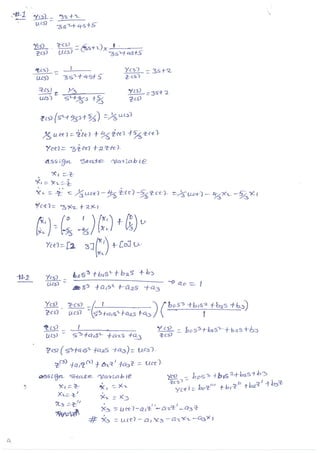 #.1 Y(s)/U(s) = 3s+2 / 3s²+4s+5
Y(s)/Z(s) · Z(s)/U(s) = (3s+2) × 1 / 3s²+4s+5
Z(s)/U(s) = 1 / 3s²+4s+5   Y(s)/Z(s) = 3s+2
Z(s)/U(s) = ⅓ / s²+4/3 s+5/3   Y(s)/Z(s) = 3s+2
Z(s) (s²+4/3 s+5/3) = ⅓ U(s)
⅓ u(t) = z̈(t) + 4/3 ż(t) + 5/3 z(t)
Y(t) = 3ż(t) + 2z(t)
assign state variable
x₁ = z
ẋ₁ = x₂ = ż
ẋ₂ = z̈ = ⅓ u(t) - 4/3 ż(t) - 5/3 z(t) = ⅓ u(t) - 4/3 x₂ - 5/3 x₁
Y(t) = 3x₂ + 2x₁
(ẋ₁ ẋ₂) = (0 1 -5/3 -4/3) (x₁ x₂) + (0 ⅓) u
Y(t) = [2 3] (x₁ x₂) + [0] u
#.2 Y(s)/U(s) = b₀s³ + b₁s² + b₂s + b₃ / s³ + a₁s² + a₂s + a₃ → a₀ = 1
Y(s)/Z(s) Z(s)/U(s) = (1 / s³+a₁s²+a₂s+a₃) (b₀s³+b₁s²+b₂s+b₃ / 1)
Z(s)/U(s) = 1 / s³+a₁s²+a₂s+a₃   Y(s)/Z(s) = b₀s³+b₁s²+b₂s+b₃
Z(s) (s³+a₁s²+a₂s+a₃) = U(s)
z''' + a₁z'' + a₂z' + a₃z = u(t)
assign state variable   Y(s)/Z(s) = b₀s³+b₁s²+b₂s+b₃
x₁ = z   ẋ₁ = x₂   Y(t) = b₀z''' + b₁z'' + b₂z' + b₃z
x₂ = z'   ẋ₂ = x₃
x₃ = z''   ẋ₃ = u(t) - a₁z'' - a₂z' - a₃z
# ẋ₃ = u(t) - a₁x₃ - a₂x₂ - a₃x₁